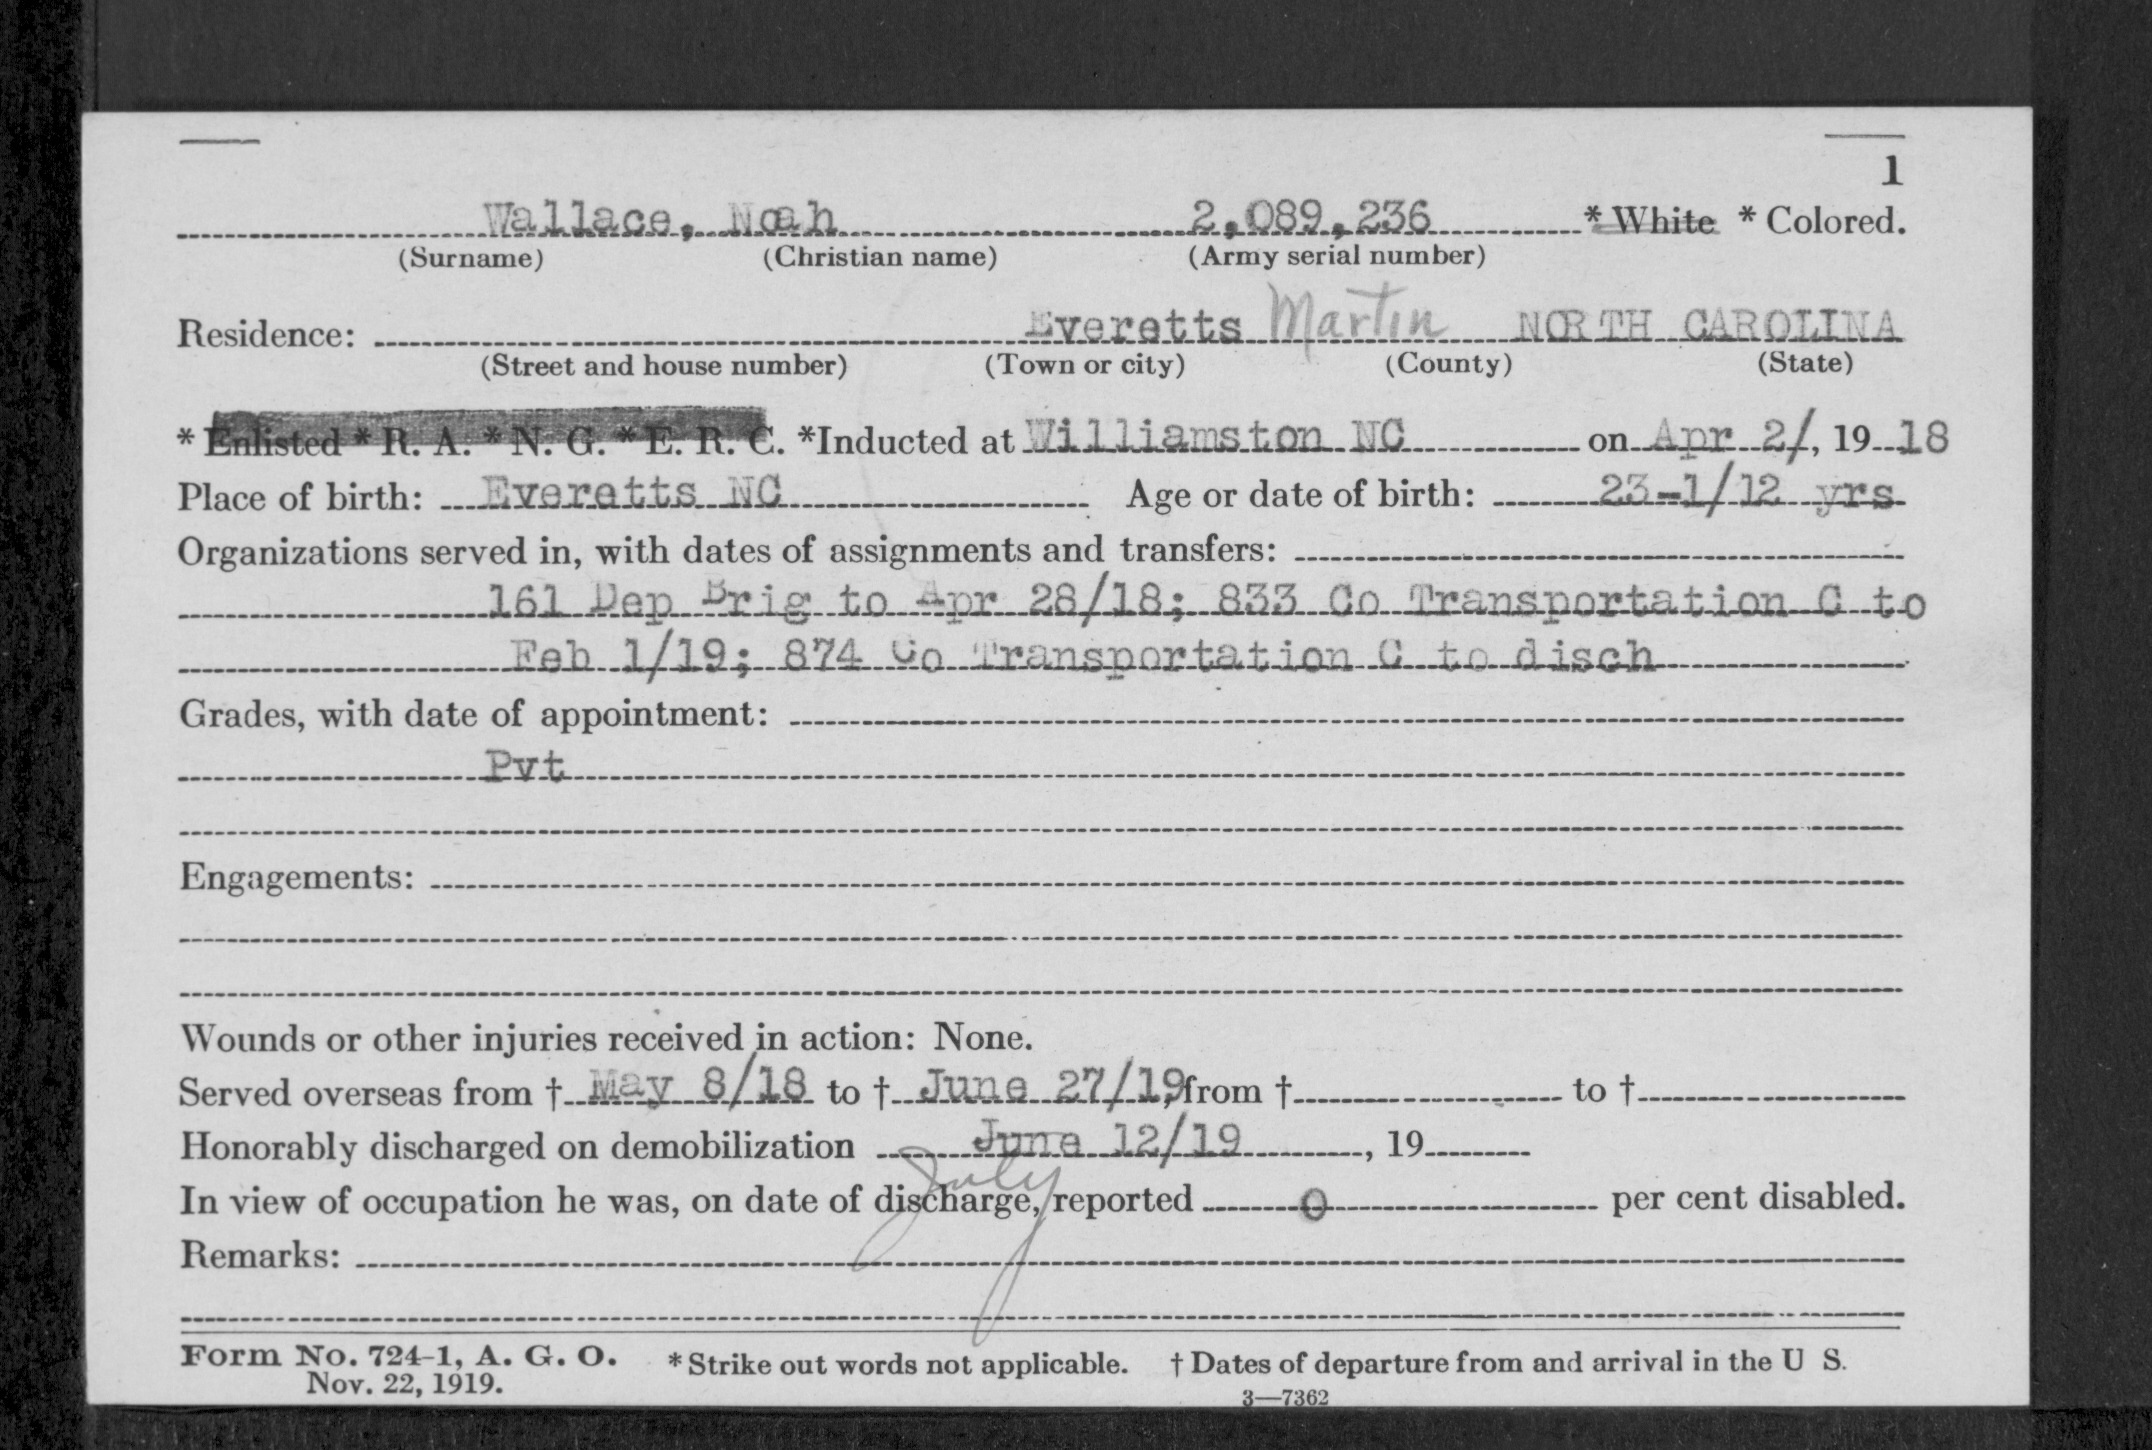 1
Wallace, Noah 2,089,236 * White * Colored.
(Surname) (Christian name) (Army serial number)
Residence: Everetts Martin NORTH CAROLINA
(Street and house number) (Town or city) (County) (State)
* Enlisted * R. A. * N. G. * E. R. C. *Inducted at Williamston NC on Apr 2/, 19 18
Place of birth: Everetts NC Age or date of birth: 23-1/12 yrs
Organizations served in, with dates of assignments and transfers:
161 Dep Brig to Apr 28/18; 833 Co Transportation C to
Feb 1/19; 874 Co Transportation C to disch
Grades, with date of appointment:
Pvt
Engagements:
Wounds or other injuries received in action: None.
Served overseas from † May 8/18 to † June 27/19, from † to †
Honorably discharged on demobilization June 12/19, 19
July
In view of occupation he was, on date of discharge, reported 0 per cent disabled.
Remarks:
Form No. 724-1, A. G. O. * Strike out words not applicable. † Dates of departure from and arrival in the U S.
Nov. 22, 1919.
3—7362